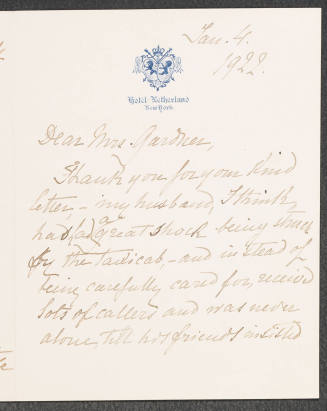 Jan. 4.
1922.
Hotel Netherland
New York
Dear Mrs. Gardner,
Thank you for your kind
letter, – my husband, I think,
had a great shock being struck
by the taxicab, – and instead of
being carefully cared for, received
lots of callers and was never
alone, till his friends insisted